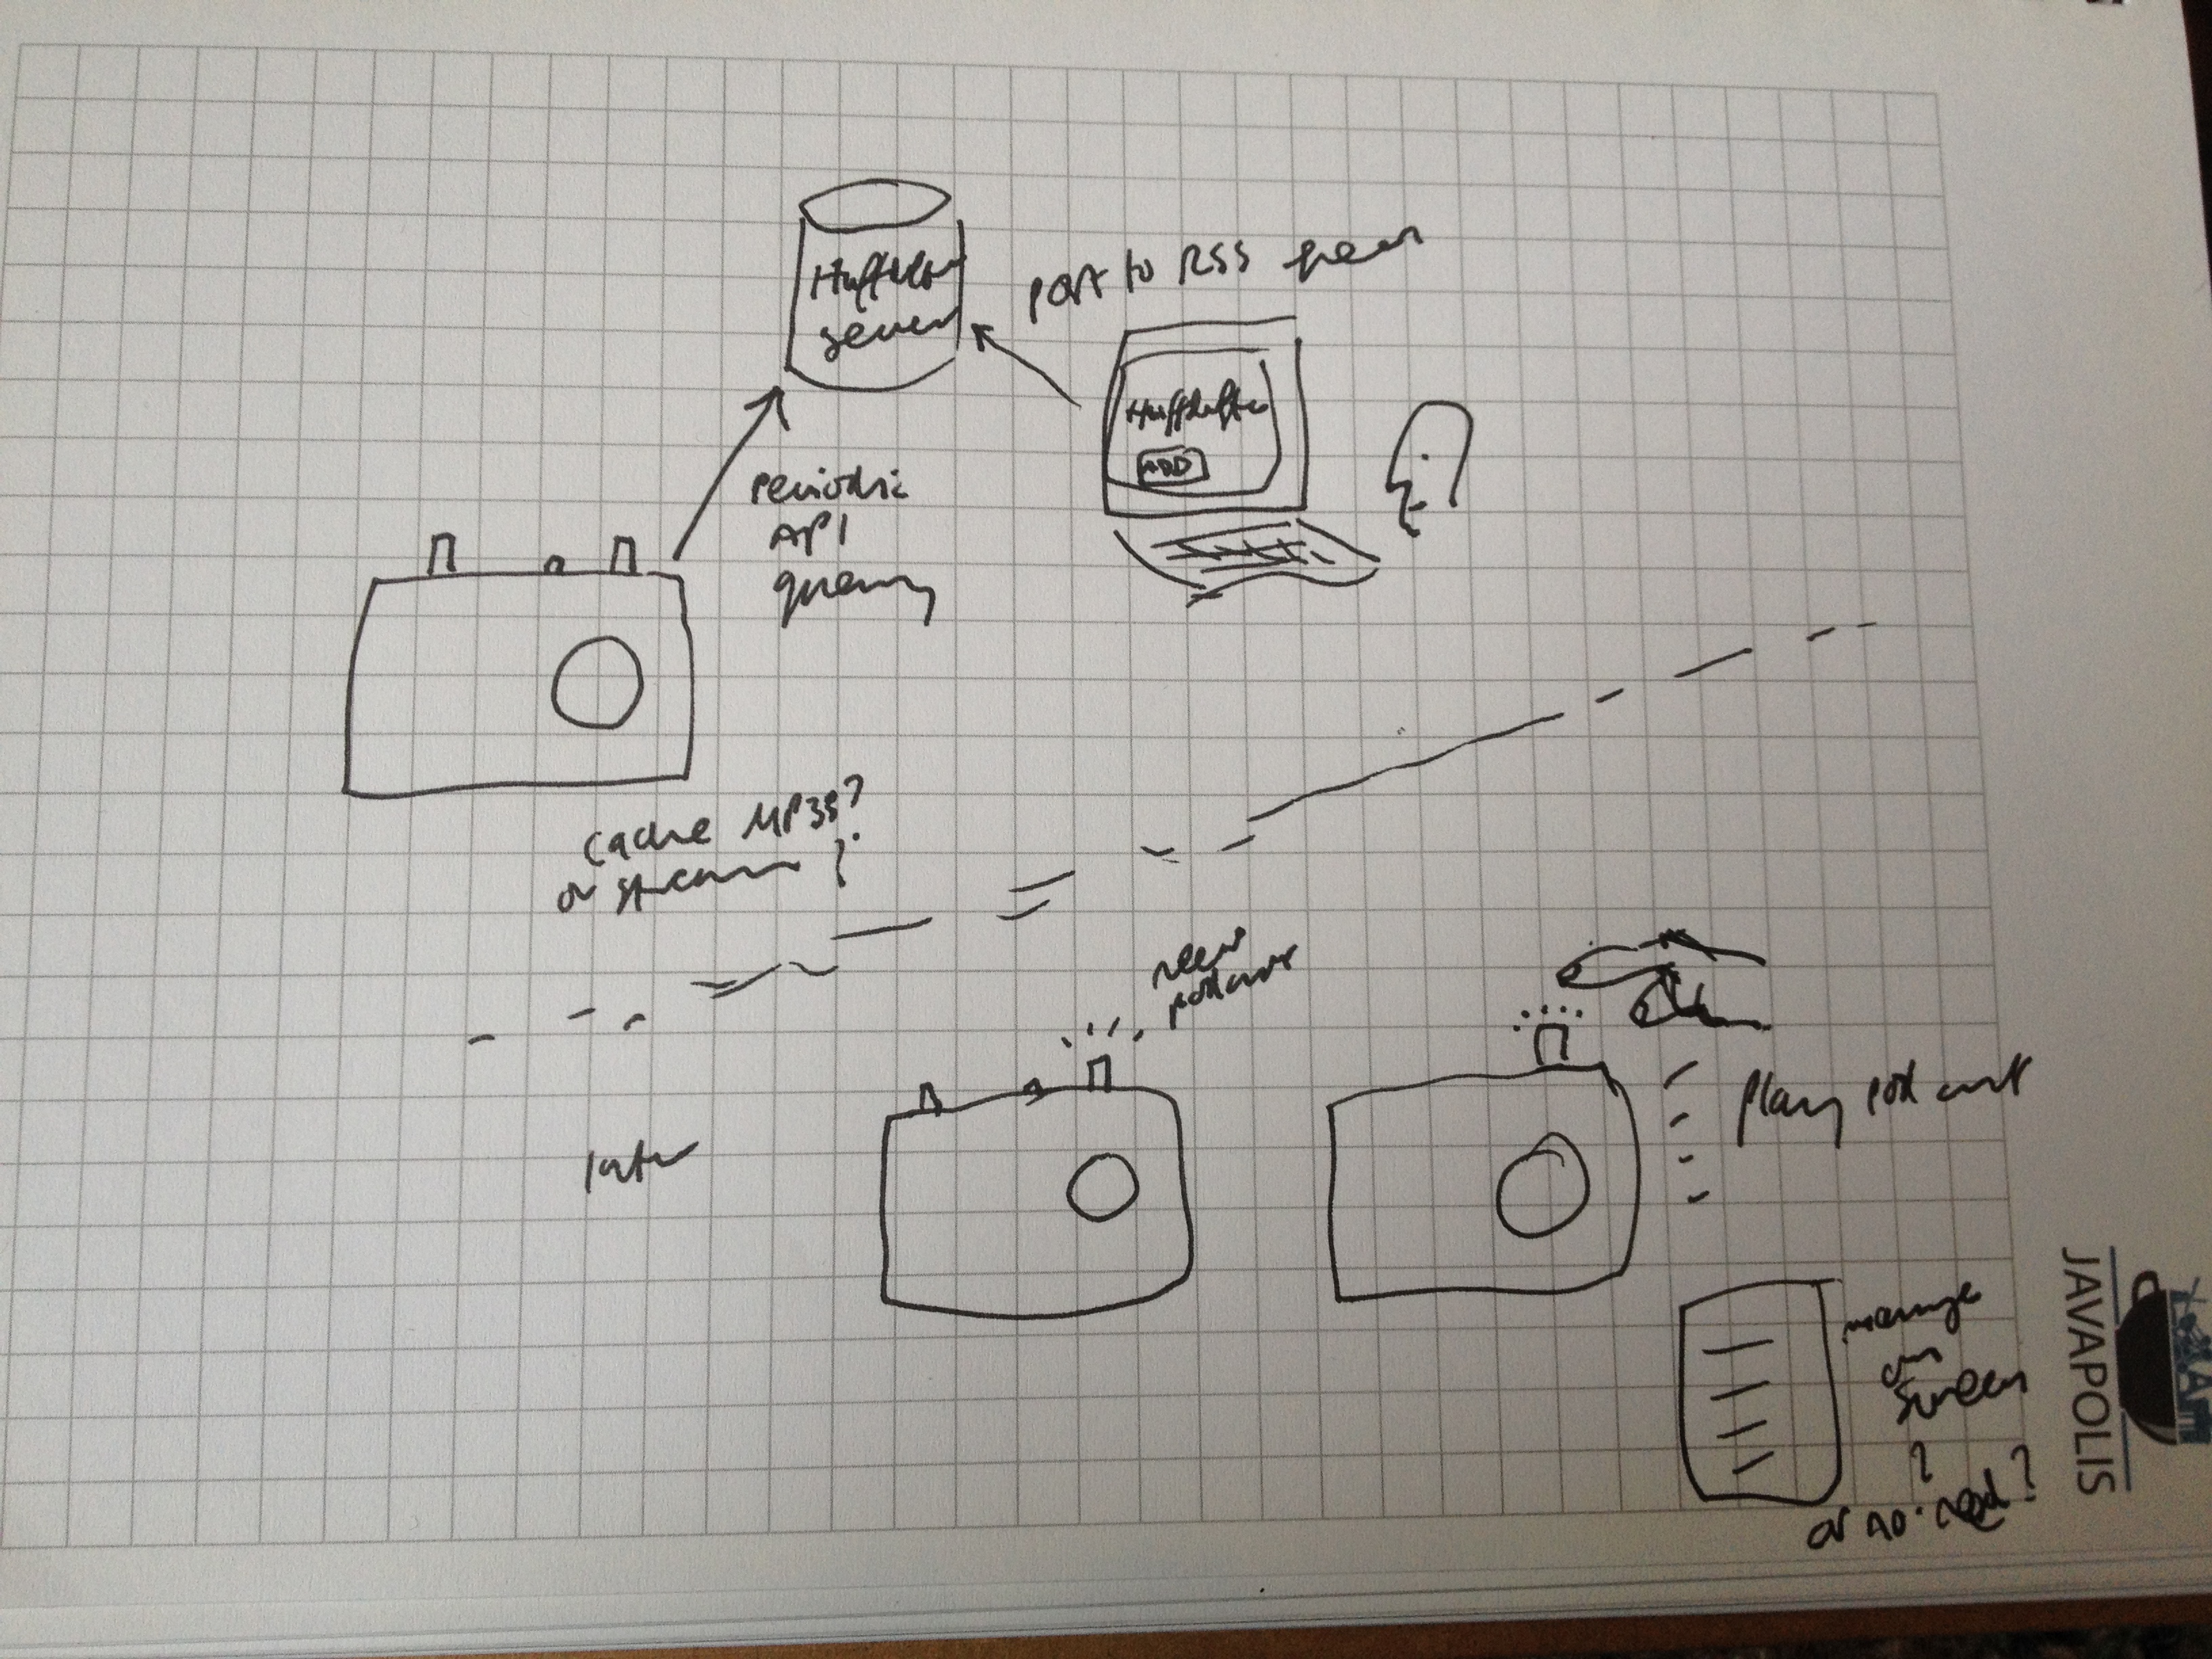 Huffduffer
server
post to RSS
Huffduffer
ADD
periodic
API
query
cache MP3s?
or stream?
new
podcast
later
play podcast
manage
on
screen
?
or no need?
JAVAPOLIS